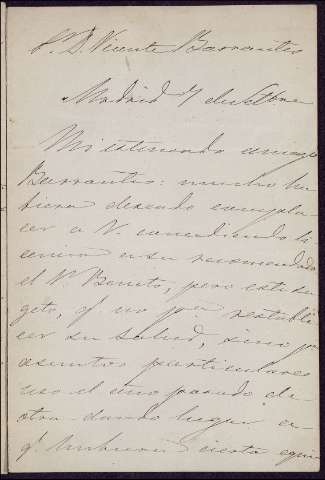 S. D. Vicente Barrantes
Madrid 7 de Obre
Mi estimado amigo
Barrantes: mucho hu
biera deseado compla
cer a V. concediendo li
cencia a su recomendado
el Sr. Benito, pero este su
geto, q. no pa restable
cer su salud, sino pa
asuntos particulares
uso el año pasado de
otra dando lugar a
q. hubiera cierta